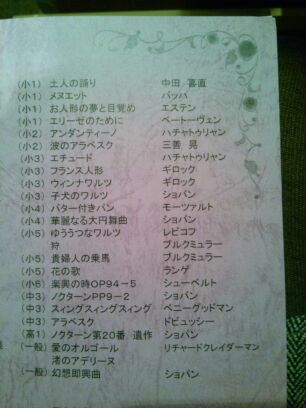 (小1) 土人の踊り 中田 喜直
(小1) メヌエット バッハ
(小1) お人形の夢と目覚め エステン
(小1) エリーゼのために ベートーヴェン
(小2) アンダンティーノ ハチャトゥリャン
(小2) 波のアラベスク 三善 晃
(小3) エチュード ハチャトゥリャン
(小3) フランス人形 ギロック
(小3) ウィンナワルツ ギロック
(小3) 子犬のワルツ ショパン
(小4) バター付きパン モーツァルト
(小4) 華麗なる大円舞曲 ショパン
(小5) ゆううつなワルツ レビコフ
狩 ブルクミュラー
(小5) 貴婦人の乗馬 ブルクミュラー
(小5) 花の歌 ランゲ
(小6) 楽興の時OP94-5 シューベルト
(中3) ノクターンPP9-2 ショパン
(中3) スィングスィングスィング ベニーグッドマン
(中3) アラベスク ドビュッシー
(高1) ノクターン第20番 遺作 ショパン
(一般) 愛のオルゴール リチャードクレイダーマン
渚のアデリーヌ
(一般) 幻想即興曲 ショパン